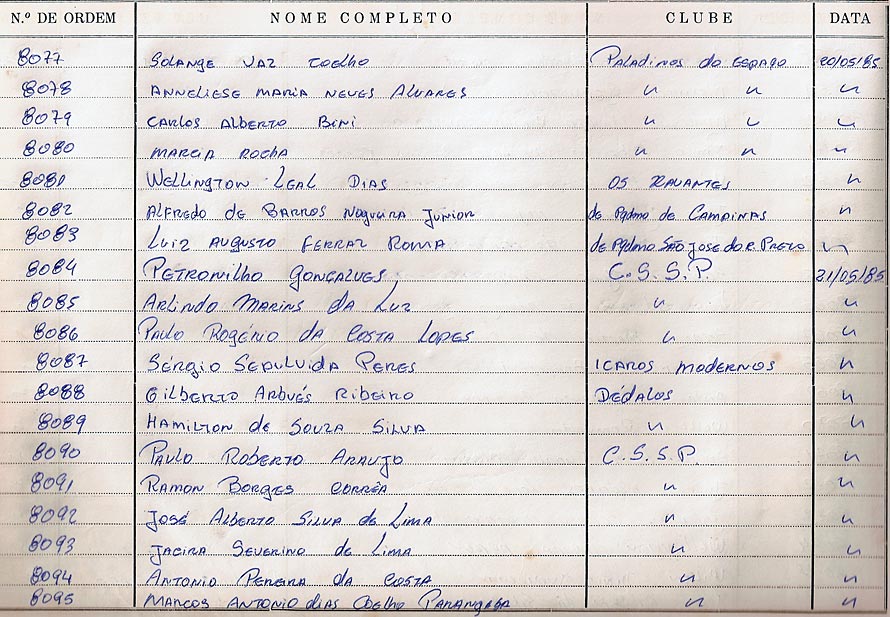 N.º DE ORDEM NOME COMPLETO CLUBE DATA
8077 SOLANGE VAZ COELHO PALADINOS do ESPAÇO 20/05/85
8078 ANNELIESE MARIA NEVES ALVARES " " "
8079 CARLOS ALBERTO BINI " " "
8080 MARCIA ROCHA " " "
8081 WELLINGTON LEAL DIAS OS "
8082 ALFREDO de BARROS NOGUEIRA JUNIOR de Pqdmo de CAMPINAS "
8083 LUIZ AUGUSTO FERRAZ ROMA de Pqdmo SÃO JOSE do R. PRETO "
8084 PETRONILHO GONÇALVES C.S.S.P. 21/05/85
8085 ARLINDO MARINS DA LUZ " "
8086 PAULO ROGÉRIO DA COSTA LOPES " "
8087 SÉRGIO SEPULVIDA PERES ICAROS MODERNOS "
8088 GILBERTO ARBUÉS RIBEIRO DÉDALOS "
8089 HAMILTON DE SOUZA SILVA " "
8090 PAULO ROBERTO ARAUJO C.S.S.P. "
8091 RAMON BORGES CORRÊA " "
8092 JOSÉ ALBERTO SILVA de LIMA " "
8093 JACIRA SEVERINO de LIMA " "
8094 ANTONIO PEREIRA DA COSTA " "
8095 MARCOS ANTONIO DIAS COELHO PARANGABA " "